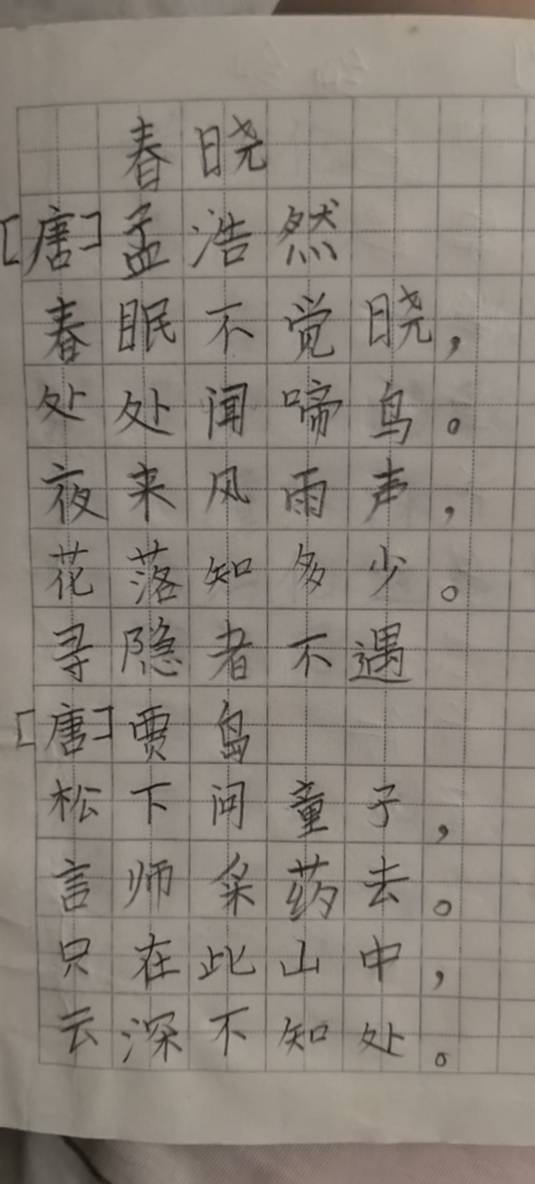 春晓
[唐]孟浩然
春眠不觉晓，
处处闻啼鸟。
夜来风雨声，
花落知多少。
寻隐者不遇
[唐]贾岛
松下问童子，
言师采药去。
只在此山中，
云深不知处。